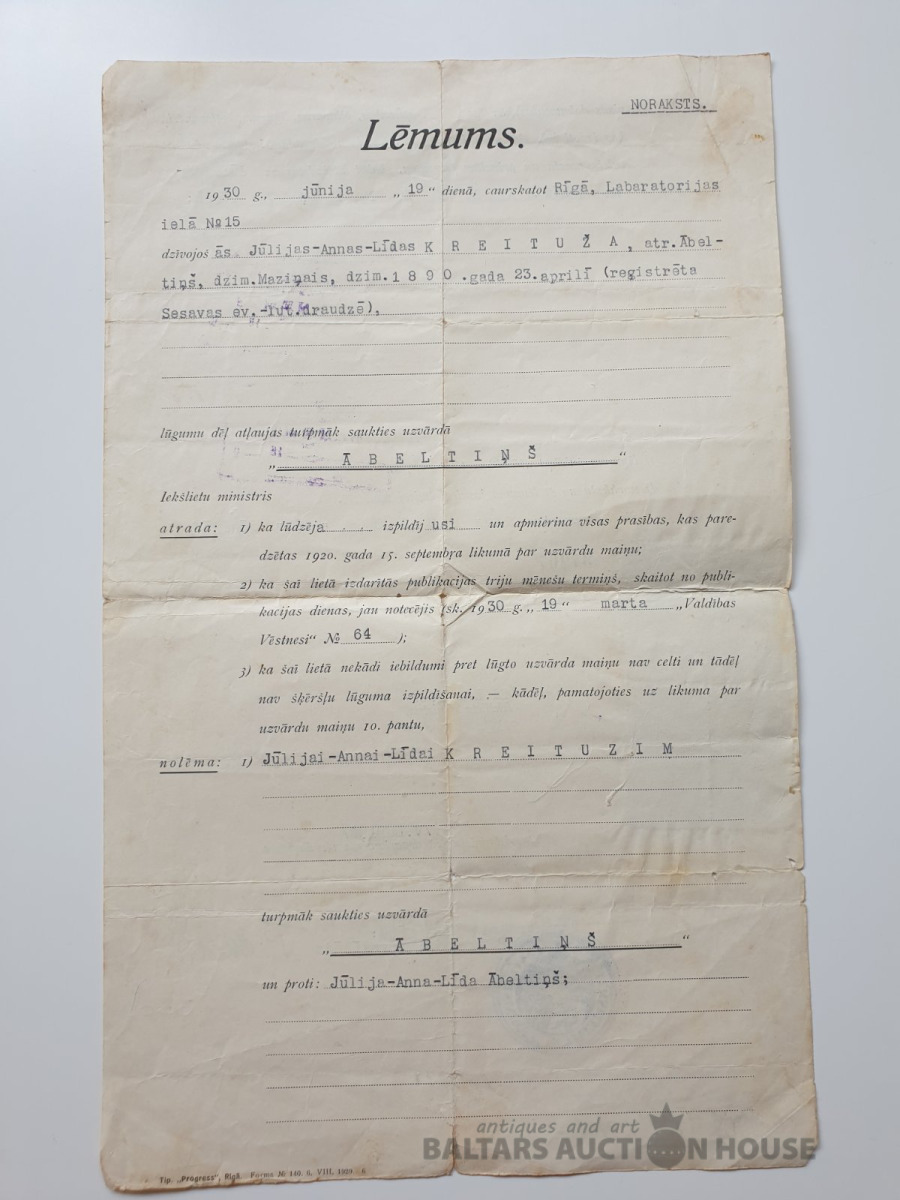 NORAKSTS.
Lēmums.
1930 g., jūnija „19“ dienā, caurskatot Rīgā, Labaratorijas
ielā №15
dzīvojošās. Jūlijas-Annas-Līdas K R E I T U Ž A, atr.Ābel-
tiņš, dzim.Maziņais, dzim.1 8 9 0.gada 23.aprilī (reģistrēta
Sesavas ev.-lut.draudzē),
lūgumu dēļ atļaujas turpmāk saukties uzvārdā
„Ā B E L T I Ņ Š“
Iekšlietu ministris
atrada: 1) ka lūdzēja izpildījusi un apmierina visas prasības, kas pare-
dzētas 1920. gada 15. septembra likumā par uzvārdu maiņu;
2) ka šai lietā izdarītās publikacijas triju mēnešu termiņš, skaitot no publi-
kacijas dienas, jau notecējis (sk. 1930 g. „19“ marta „Valdības
Vēstnesi“ № 64 );
3) ka šai lietā nekādi iebildumi pret lūgto uzvārda maiņu nav celti un tādēļ
nav šķēršļu lūguma izpildīšanai, — kādēļ, pamatojoties uz likuma par
uzvārdu maiņu 10. pantu,
nolēma: 1) Jūlijai-Annai-Līdai K R E I T U Z I M
turpmāk saukties uzvārdā
„Ā B E L T I Ņ Š“
un proti: Jūlija-Anna-Līda Ābeltiņš;
Tip. „Progress“, Rīgā. Forma № 140. 6. VIII. 1929
antiques and art
BALTARS AUCTION HOUSE